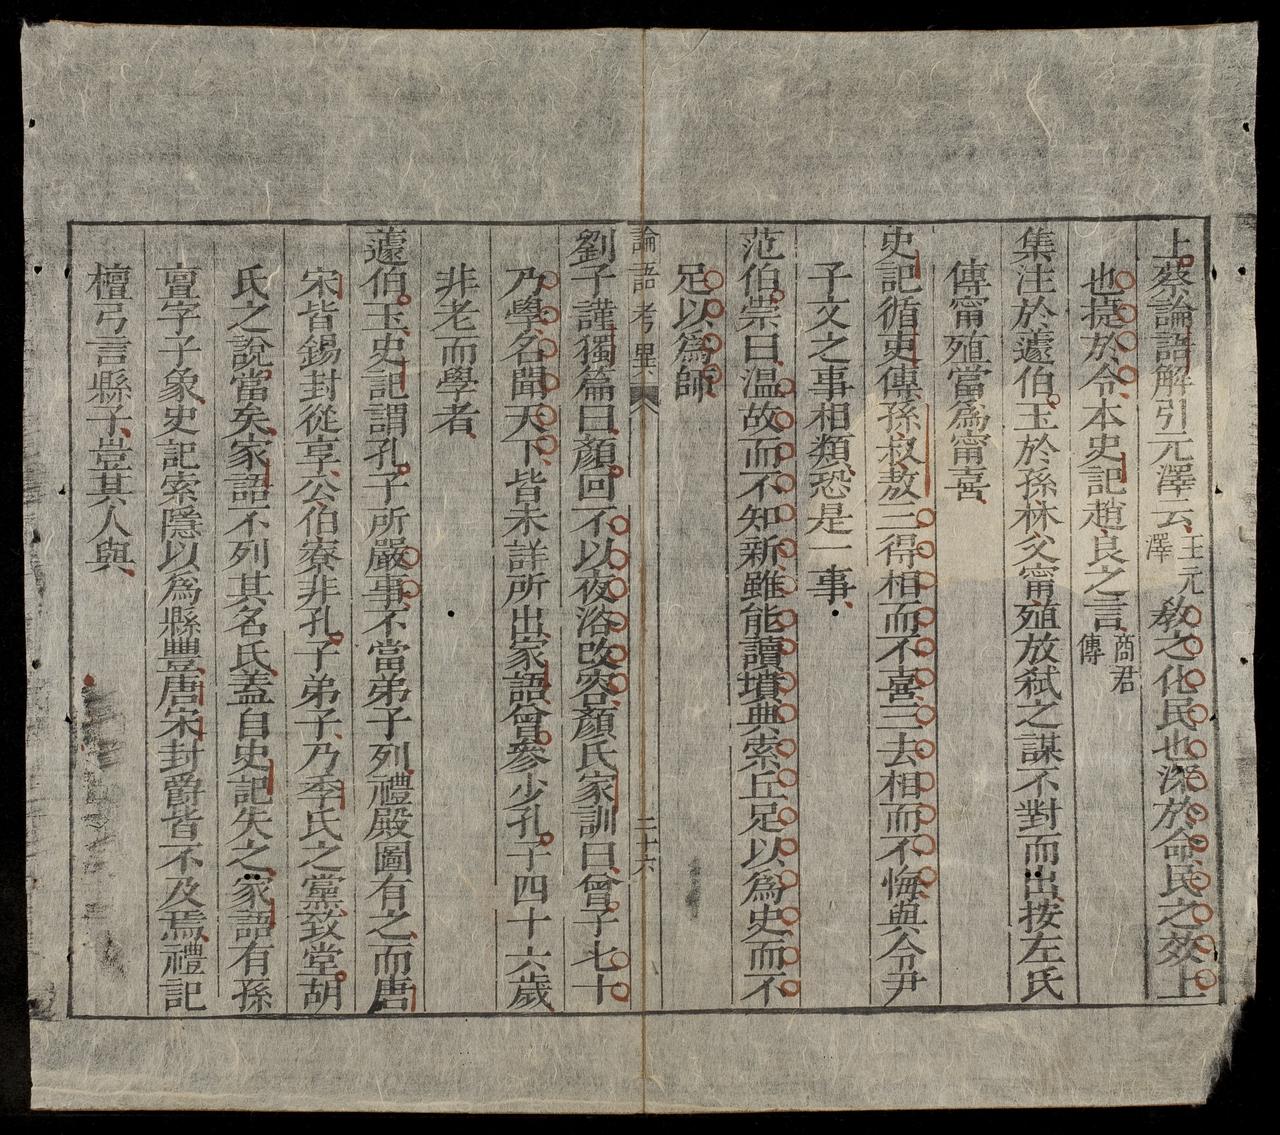 上蔡論語解引元澤云王元澤教之化民也深於命民之效上
也捷於令本史記趙良之言商君傳
集注於蘧伯玉於孫林父甯殖放弒之謀不對而出按左氏
傳甯殖當爲甯喜
史記循吏傳孫叔敖三得相而不喜三去相而不悔與令尹
子文之事相類恐是一事
范伯崇曰温故而不知新雖能讀墳典索丘足以爲史而不
足以爲師
論語考異
二十六
劉子謹獨篇曰顏回不以夜浴改容顏氏家訓曰曾子七十
乃學名聞天下皆未詳所出家語曾參少孔子四十六歲
非老而學者
蘧伯玉史記謂孔子所嚴事不當弟子列禮殿圖有之而唐
宋皆錫封從享公伯寮非孔子弟子乃季氏之黨致堂胡
氏之說當矣家語不列其名氏蓋自史記失之家語有孫
亶字子象史記索隱以爲縣豐唐宋封爵皆不及焉禮記
檀弓言縣子豈其人與